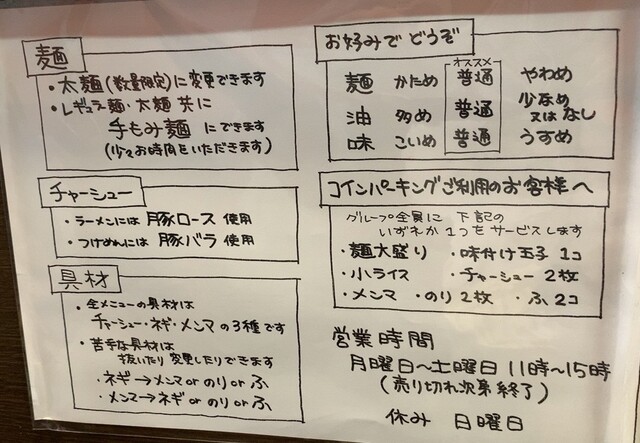 麺
・太麺(数量限定)に変更できます
・レギュラー麺・太麺 共に
手もみ麺 にできます
(少々お時間をいただきます)
チャーシュー
・ラーメンには 豚ロース 使用
・つけめんには 豚バラ 使用
具材
・全メニューの具材は
チャーシュー・ネギ・メンマ の3種です
・苦手な具材は
抜いたり変更したりできます
・ネギ→メンマ or のり or ふ
・メンマ→ネギ or のり or ふ
お好みで どうぞ
オススメ
麺 かため 普通 やわめ
油 多め 普通 少なめ
又は なし
味 こいめ 普通 うすめ
コインパーキングご利用のお客様へ
グループ全員に 下記の
いずれか1つをサービスします
・麺大盛り ・味付け玉子 1コ
・小ライス ・チャーシュー 2枚
・メンマ ・のり 2枚 ・ふ 2コ
営業時間
月曜日～土曜日 11時～15時
(売り切れ次第終了)
休み 日曜日